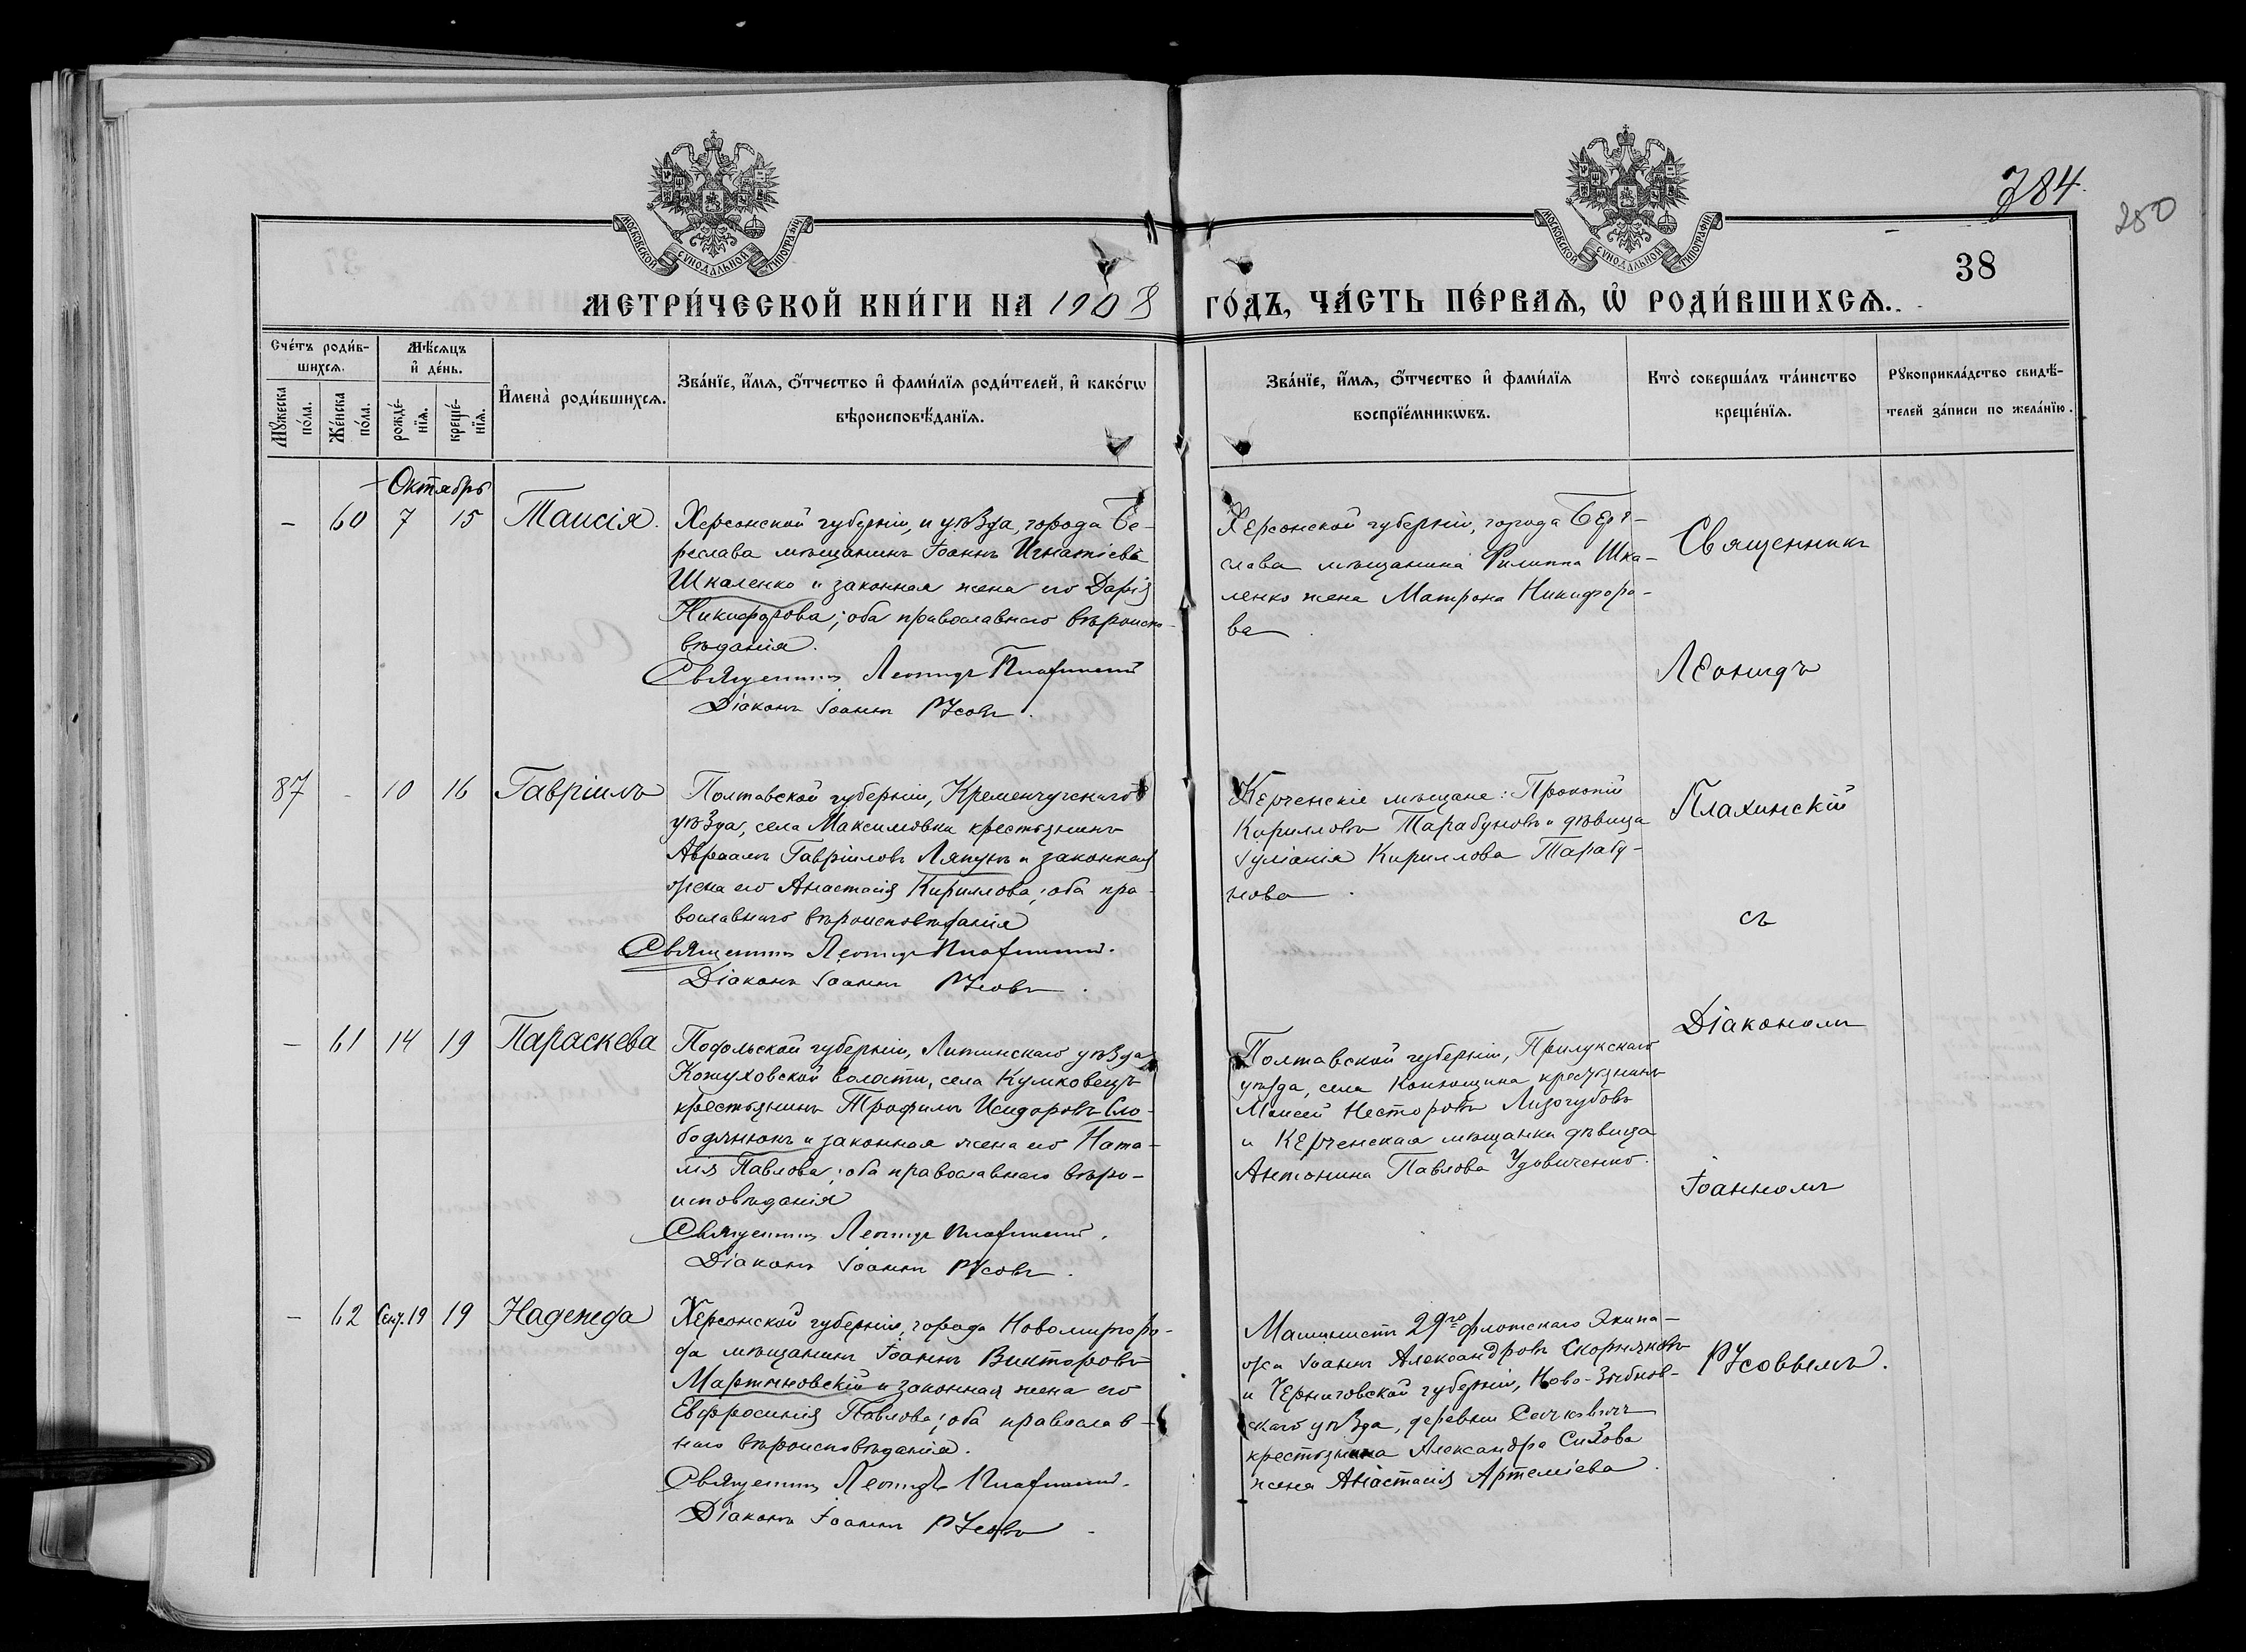 784.
250
38
МОСКОВСКОЙ СѴНОДАЛЬНОЙ ТИПОГРАФІИ
МОСКОВСКОЙ СѴНОДАЛЬНОЙ ТИПОГРАФІИ
МЕТРИ́ЧЕСКОЙ КНИ́ГИ НА 1908 ГО́ДЪ, ЧА́СТЬ ПЕ́РВАѦ, Ѡ҆ РОДИ́ВШИХСѦ.
Сче́тъ роди́в-
шихсѧ.
Мꙋжеска по́ла.
Же́нска по́ла.
Мѣ́сѧцъ
и҆ де́нь.
рожде́-
нїѧ.
креще́-
нїѧ.
И҆мена̀ роди́вшихсѧ.
Зва́нїе, и҆́мѧ, ѻ҆́тчество и҆ фами́лїѧ роди́телей, и҆ како́гѡ
вѣроисповѣ́данїѧ.
Зва́нїе, и҆́мѧ, ѻ҆́тчество и҆ фами́лїѧ
воспрїе́мникѡвъ.
Кто̀ соверша́лъ та́инство
креще́нїѧ.
Рꙋкоприкла́дство свидѣ́-
телей за́писи по жела́нїю.
Октябрь
- 60 7 15 Таисія.
Херсонской губерніи, и уѣзда, города Бе-
реслава мѣщанинъ Іоаннъ Игнатіевъ
Шкаленко и законная жена его Дарія
Никифорова; оба православнаго вѣроиспо-
вѣданія.
Священникъ Леонидъ Плахинскій
Діаконъ Іоаннъ Русовъ.
Херсонской губерніи, города Бери-
слава мѣщанина Филиппа Шка-
ленко жена Матрона Никифоро-
ва
87 - 10 16 Гавріилъ
Полтавской губерніи, Кременчугскаго
уѣзда, села Максимовки крестьянинъ
Авраамъ Гавріиловъ Ляпунъ и законная
жена его Анастасія Кириллова; оба пра-
вославнаго вѣроисповѣданія
Священникъ Леонидъ Плахинскій.
Діаконъ Іоаннъ Русовъ.
Керченскіе мѣщане: Прокопій
Кирилловъ Тарабуновъ и дѣвица
Іуліанія Кириллова Тарабу-
нова.
- 61 14 19 Параскева
Подольской губерніи, Литинскаго уѣзда
Кожуховской волости, села Кумковецъ
крестьянинъ Трофимъ Исидоровъ Сло-
бодянюкъ и законная жена его Ната-
лія Павлова; оба православнаго вѣро-
исповѣданія
Священникъ Леонидъ Плахинскій.
Діаконъ Іоаннъ Русовъ.
Полтавской губерніи, Прилукскаго
уѣзда, села крестьянинъ
Моисей Несторовъ Лизогубовъ
и Керченская мѣщанка дѣвица
Антонина Павлова Удовиченко.
- 62 Сент. 19 19 Надежда
Херсонской губерніи, города Новомиргоро-
да мѣщанинъ Іоаннъ Викторовъ
Мартыновскій и законная жена его
Евфросинія Павлова; оба православ-
наго вѣроисповѣданія.
Священникъ Леонидъ Плахинскій.
Діаконъ Іоаннъ Русовъ.
Машинистъ 29го флотскаго Экипа-
жа Іоаннъ Александровъ
и Черниговской губерніи, Ново-Зыбков-
скаго уѣзда, деревни
крестьянина Александра Сизова
жена Анастасія Артеміева.
Священникъ
Леонидъ
Плахинскій
съ
Діакономъ
Іоанномъ
Русовымъ.